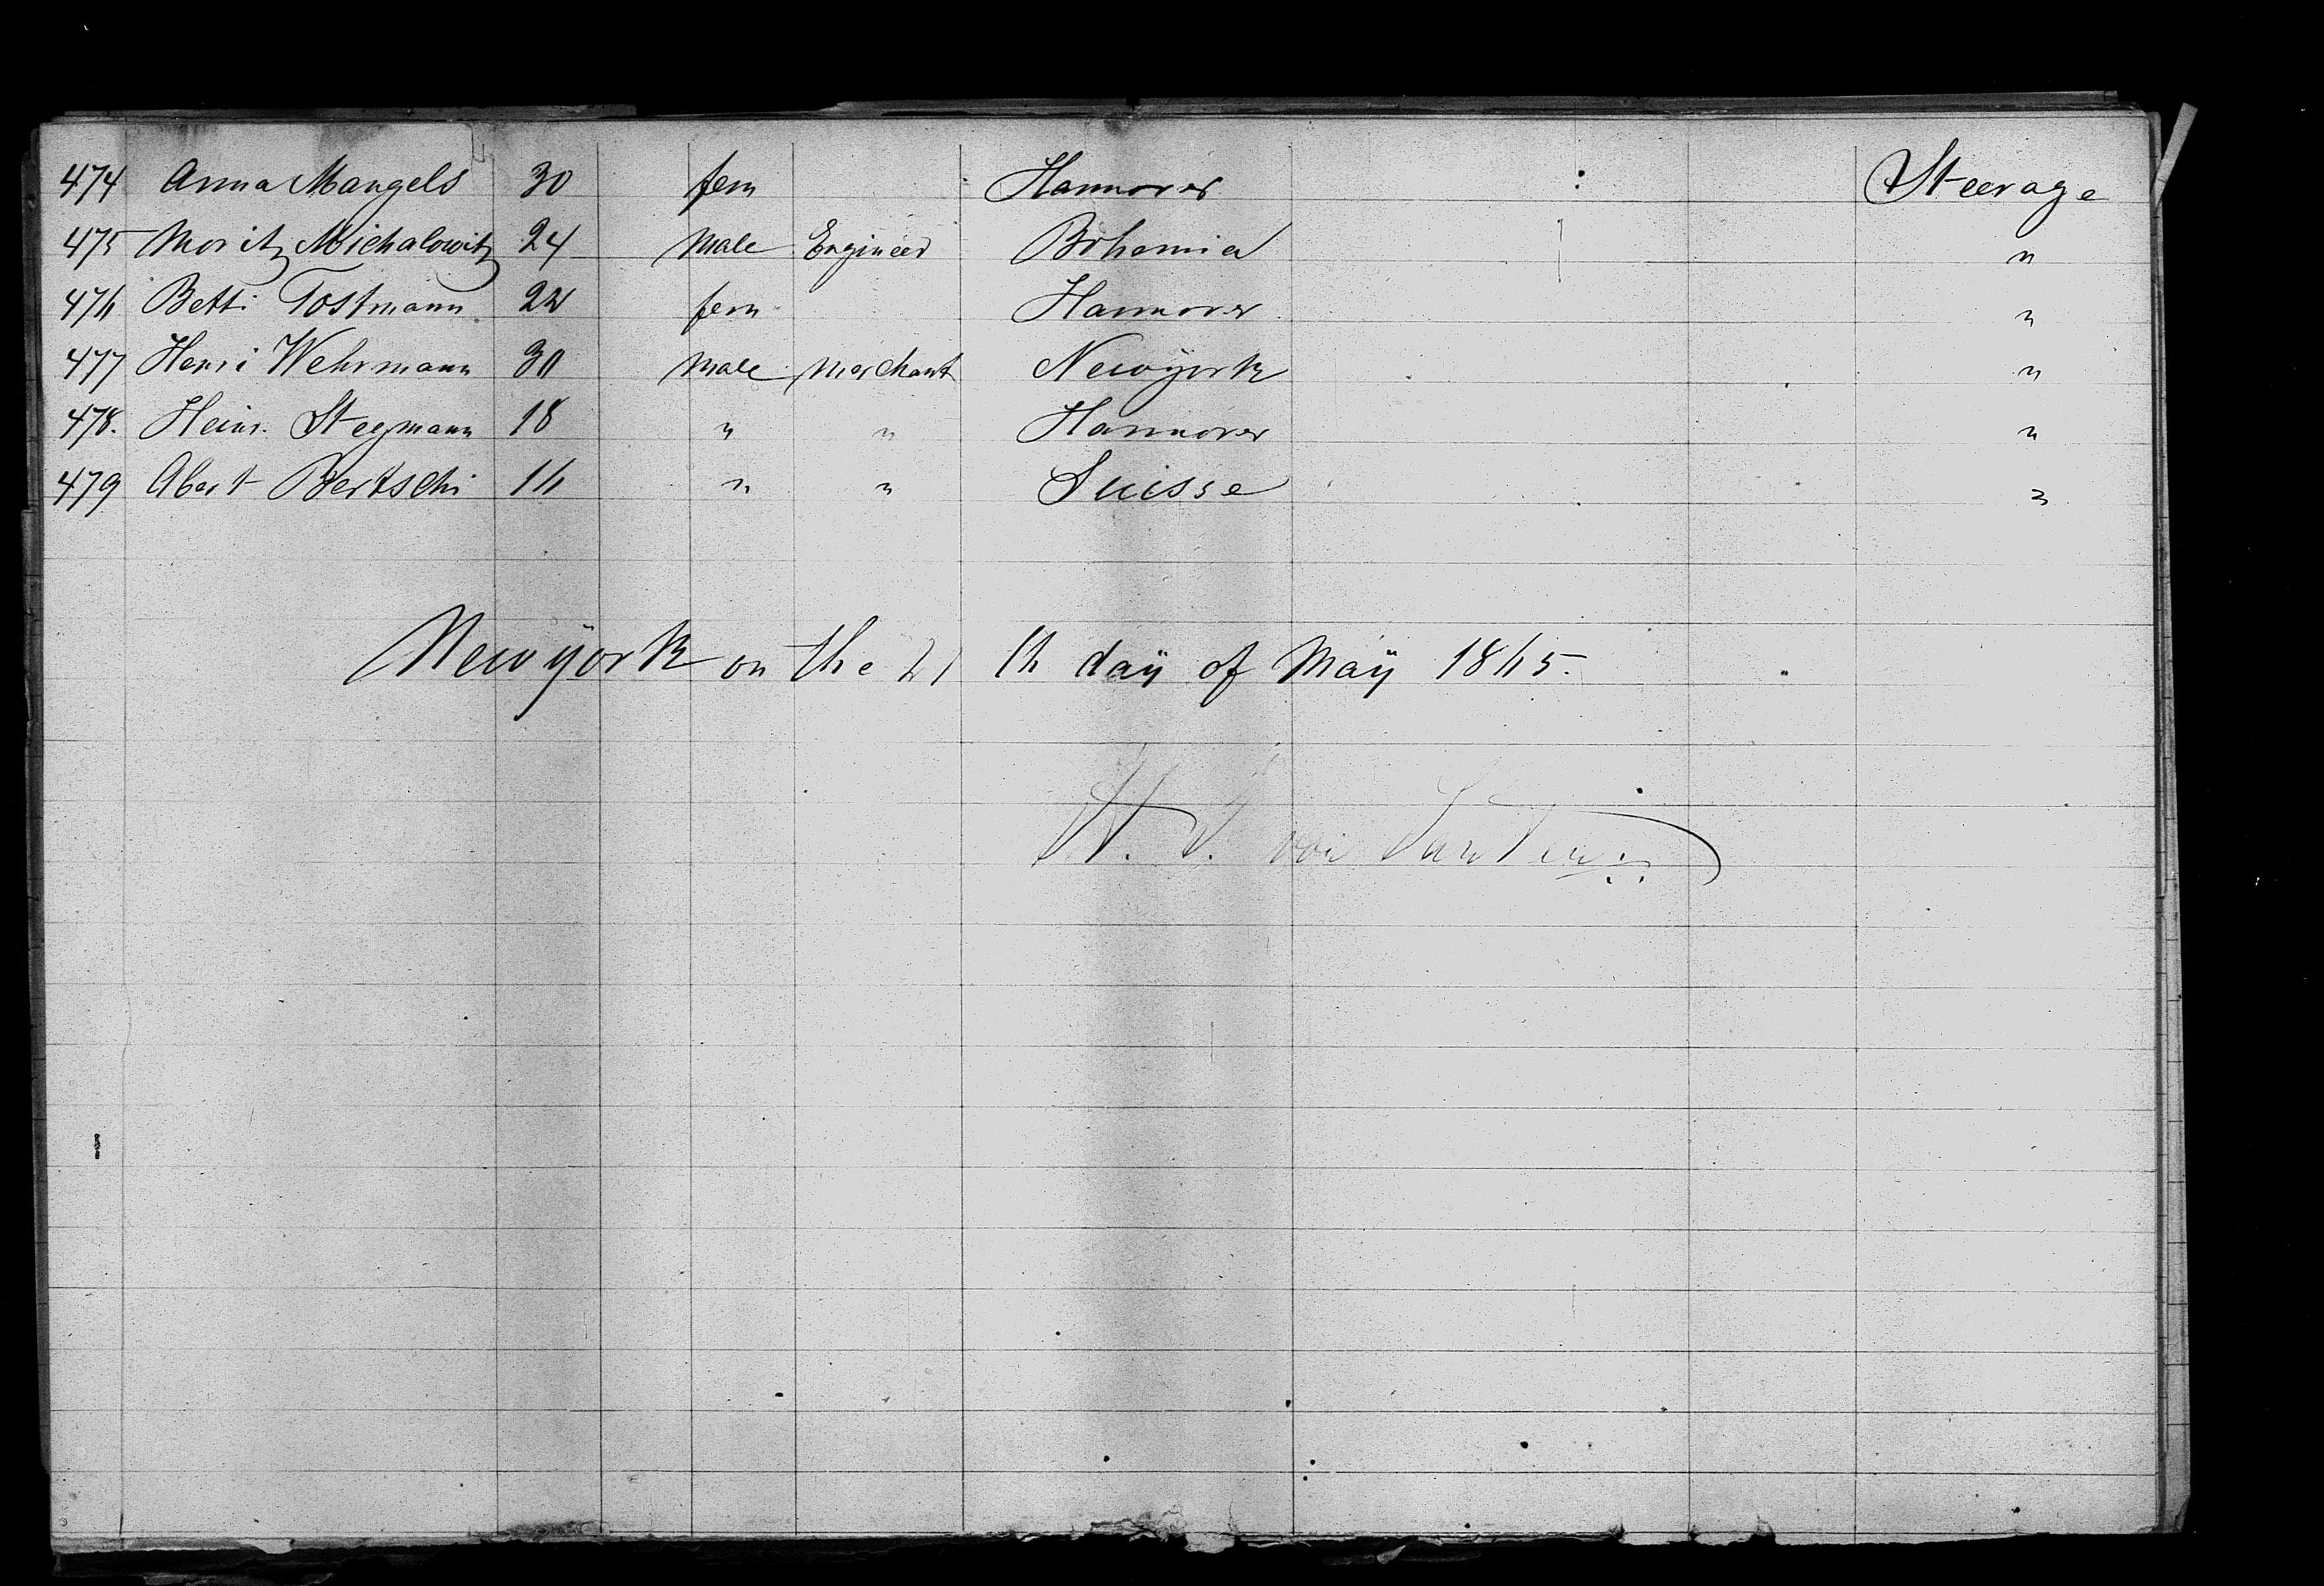 474 Anna Mangels 30 fem Hannover Steerage
475 Moritz Michalowitz 24 Male Engineer Bohemia "
476 Betti Tostmann 22 fem Hannover "
477 Henri Wehrmann 30 Male Merchant Newyork "
478. Heinr. Stegmann 18 " " Hannover "
479 Abert Bertschi 16 " " Suisse "
Newÿork on the 21 th daÿ of Maÿ 1865.
H. J. von Santen